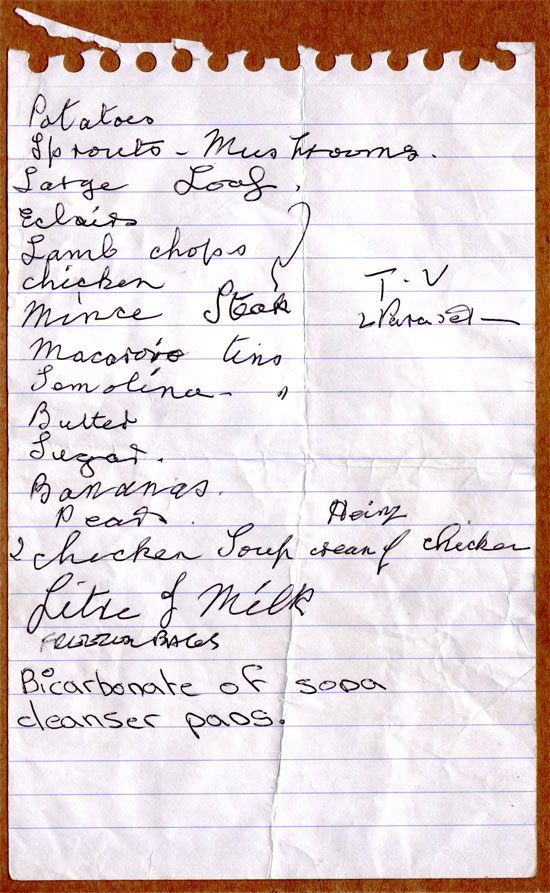 Potatoes
Sprouts - Mushrooms.
Large Loaf.
Eclairs
Lamb chops
chicken
Mince Steak
T.V
2 Paraset
Macaroni tins
Semolina - "
Butter
Sugar.
Bananas.
Pears.
Heinz
2 chicken Soup cream of chicken
Litre of Milk
FREEZER BAGS
Bicarbonate of soda
cleanser pads.